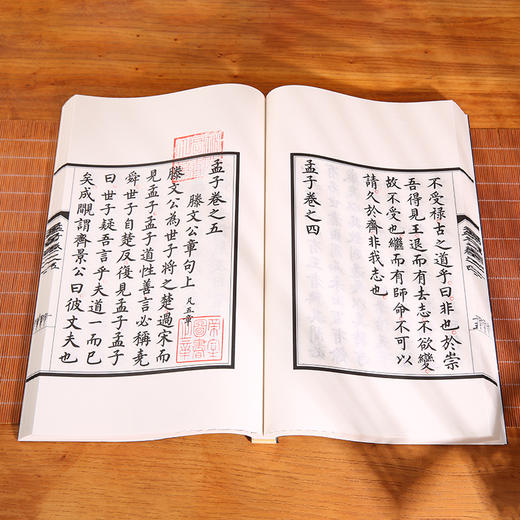 不受禄古之道乎曰非也於崇
吾得見王退而有去志不欲變
故不受也繼而有師命不可以
請久於齊非我志也
孟子卷之四
孟子卷之五
滕文公章句上 凡五章
滕文公為世子將之楚過宋而
見孟子孟子道性善言必稱堯
舜世子自楚反復見孟子孟子
曰世子疑吾言乎夫道一而已
矣成覸謂齊景公曰彼丈夫也